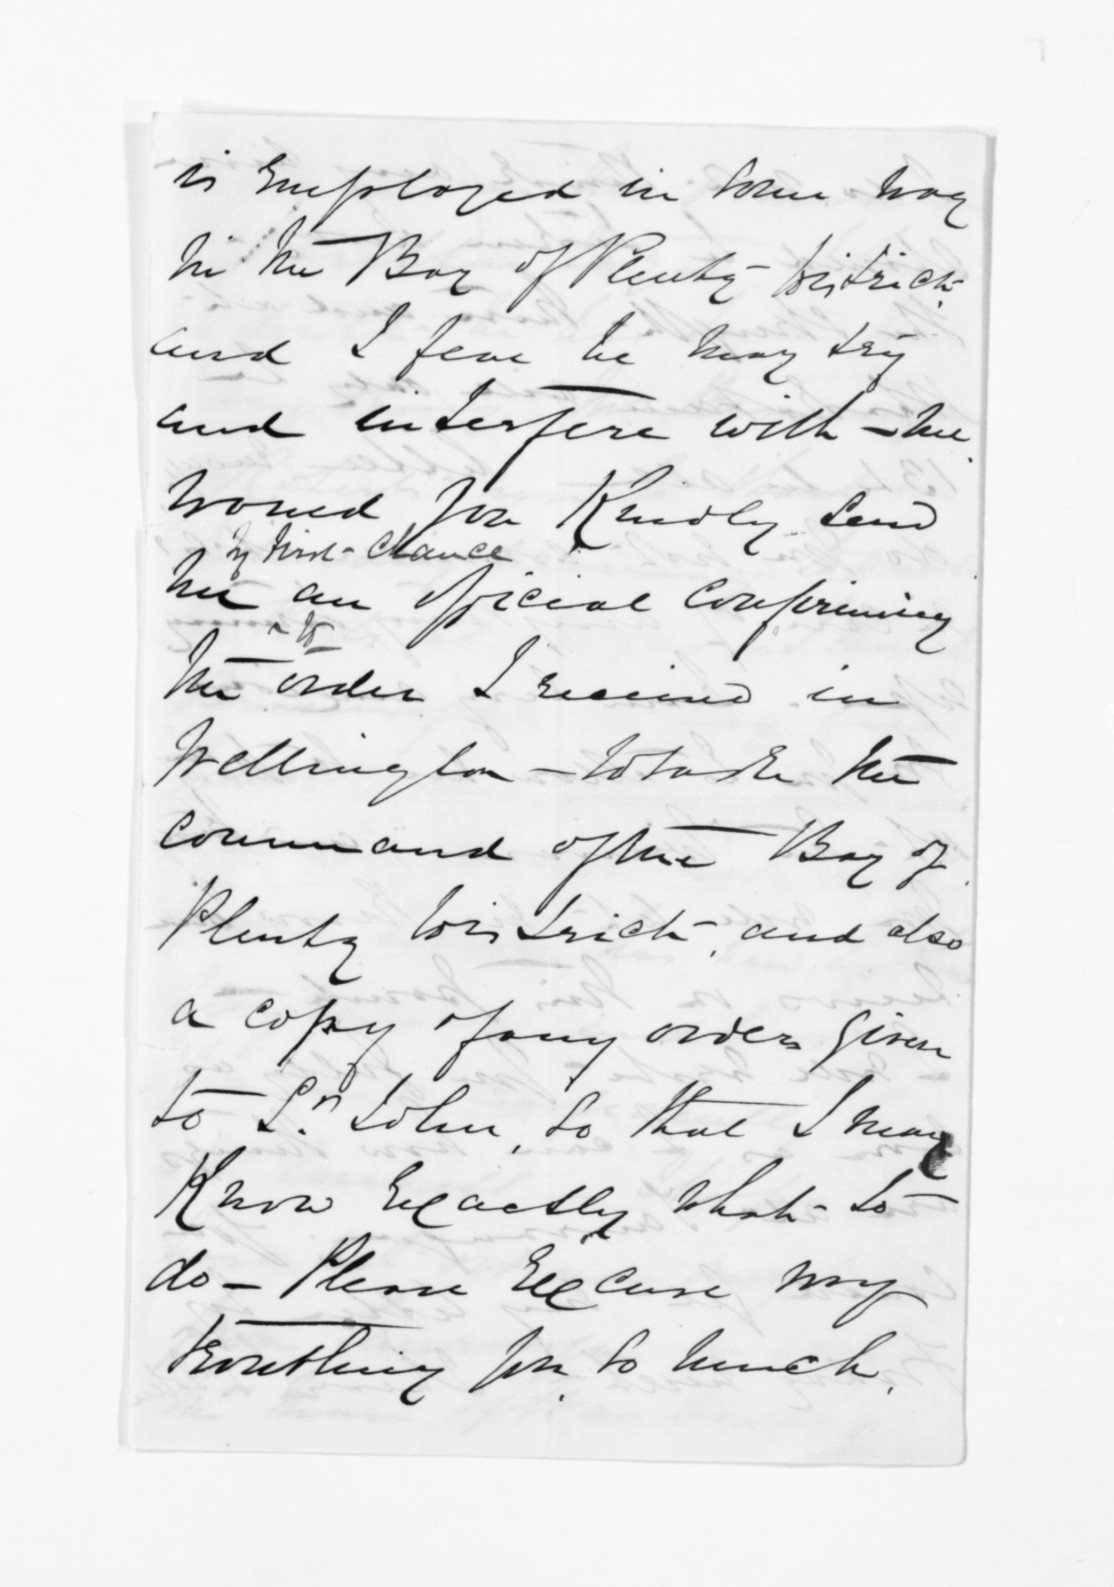 is employed in some way
in the Bay of Plenty District
and I fear he may try
and interfere with me.
would you Kindly send
by first chance
me an official confirming
the order I received in
Wellington - to take the
command of the Bay of
Plenty District, and also
a copy of any orders given
to St. John, so that I may
Know Exactly what to
do - Please Excuse my
troubling you so much.